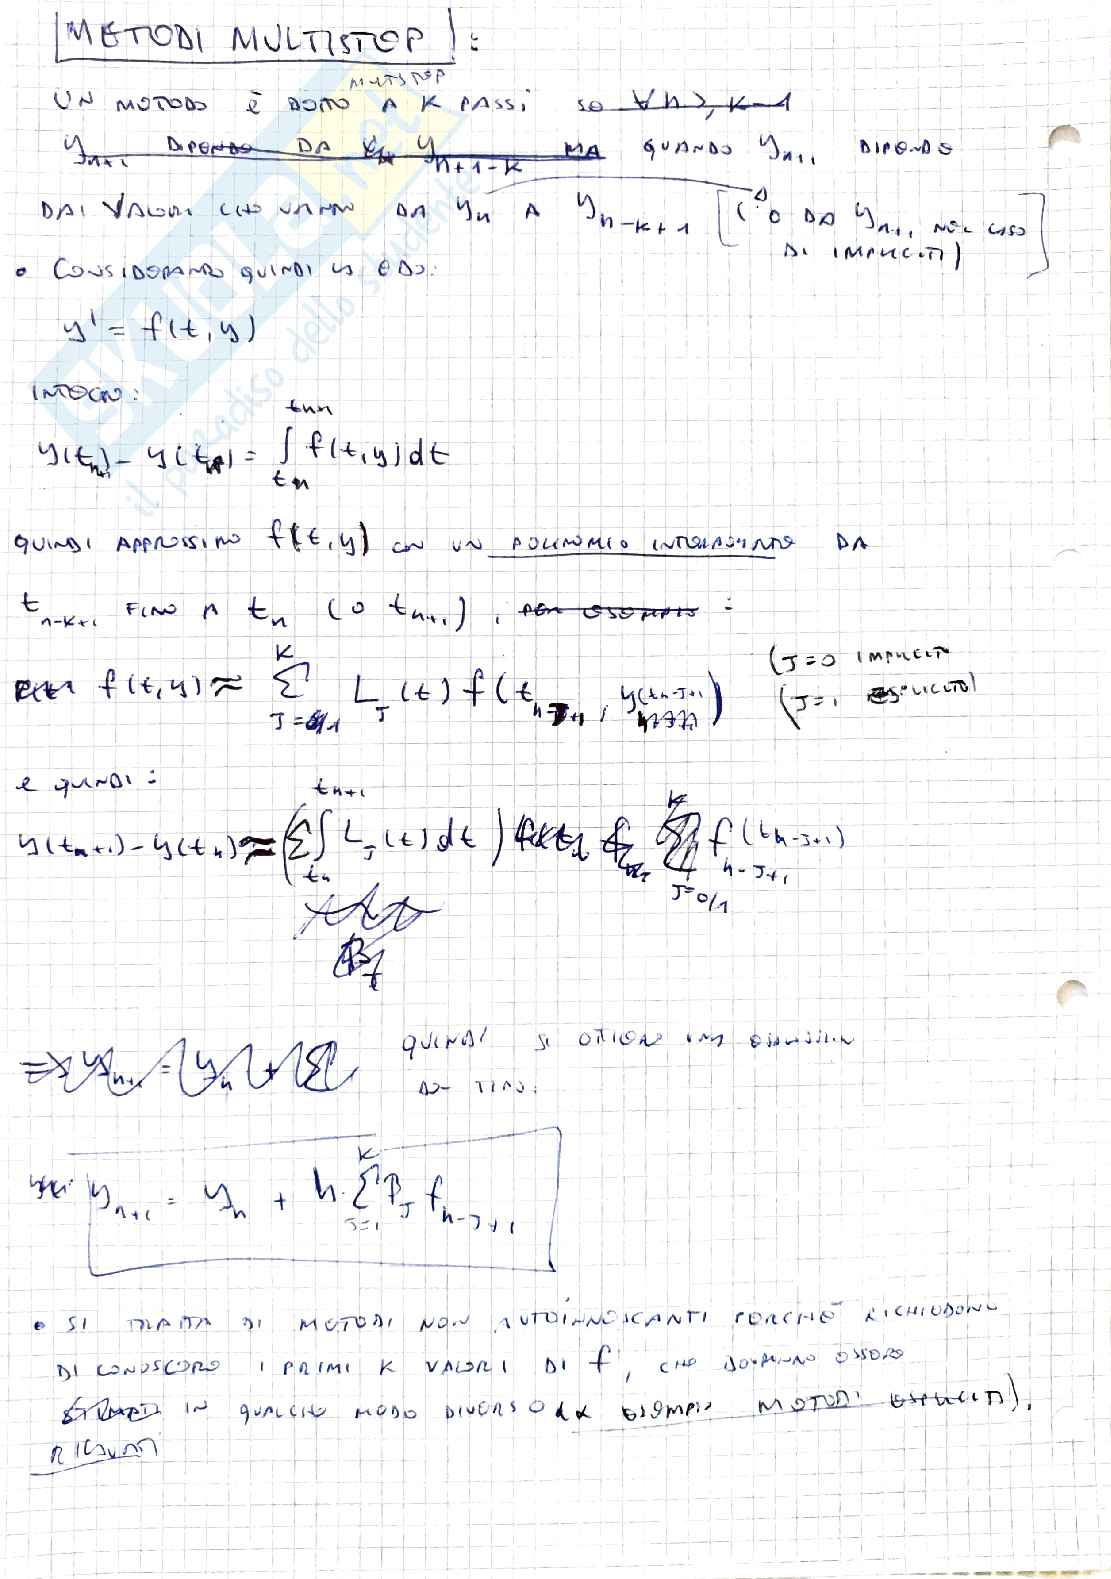 METODI MULTISTEP :
MULTISTEP
UN METODO È DETTO A K PASSI SE ∀n ≥ K-1
y_{n+1} DIPENDE DA y_{n+1-K} MA QUANDO y_{n+1} DIPENDE
DAI VALORI CHE VANNO DA y_n A y_{n-K+1} [(O DA y_{n+1} NEL CASO
DI IMPLICITI)]
• CONSIDERANDO QUINDI LA EDO:
y' = f(t,y)
INTEGRO:
y(t_{n+1}) - y(t_n) = ∫_{t_n}^{t_{n+1}} f(t,y)dt
QUINDI APPROSSIMO f(t,y) CON UN POLINOMIO INTERPOLANTE DA
t_{n-K+1} FINO A t_n (O t_{n+1}), PER ESEMPIO :
f(t,y) ≈ Σ_{J=0/1}^{K} L_J(t) f(t_{n-J+1}, y(t_{n-J+1})) (J=0 IMPLICITO
(J=1 ESPLICITO)
E QUINDI :
y(t_{n+1}) - y(t_n) ≈ (Σ∫_{t_n}^{t_{n+1}} L_J(t)dt) Σ_{J=0/1}^{K} f_{n-J+1}(t_{n-J+1})
β_J
⇒ y_{n+1} = y_n + Σ QUINDI SI OTTIENE UNA ESPRESSIONE
DEL TIPO:
y_{n+1} = y_n + h·Σ_{J=1}^{K} β_J f_{n-J+1}
• SI TRATTA DI METODI NON AUTOINNESCANTI PERCHÈ RICHIEDONO
DI CONOSCERE I PRIMI K VALORI DI f, CHE DOVRANNO ESSERE
IN QUALCHE MODO DIVERSO (AD ESEMPIO METODI ESPLICITI).
RICAVATI